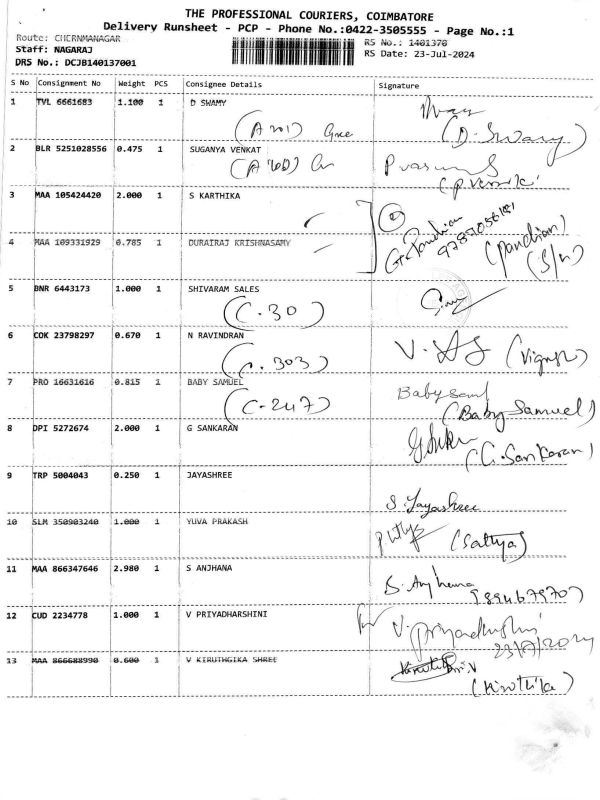 THE PROFESSIONAL COURIERS, COIMBATORE
Delivery Runsheet - PCP - Phone No.:0422-3505555 - Page No.:1
Route: CHERNMANAGAR
RS No.: 1401370
Staff: NAGARAJ
RS Date: 23-Jul-2024
DRS No.: DCJB140137001
S No Consignment No Weight PCS Consignee Details Signature
1 TVL 6661683 1.100 1 D SWAMY
(D. Swamy)
2 BLR 5251028556 0.475 1 SUGANYA VENKAT
3 MAA 105424420 2.000 1 S KARTHIKA
G. Pandian
4 MAA 109331929 0.785 1 DURAIRAJ KRISHNASAMY (Pandian)
(S/n)
5 BNR 6443173 1.000 1 SHIVARAM SALES
(C. 30)
6 COK 23798297 0.670 1 N RAVINDRAN
(C. 303)
7 PRO 16631616 0.815 1 BABY SAMUEL
(C-247) (Baby Samuel)
8 DPI 5272674 2.000 1 G SANKARAN
(G. Sankaran)
9 TRP 5004043 0.250 1 JAYASHREE
S. Jayashree
10 SLM 350903240 1.000 1 YUVA PRAKASH
(Sathya)
11 MAA 866347646 2.980 1 S ANJHANA
S. Anjhana
9894679707
12 CUD 2234778 1.000 1 V PRIYADHARSHINI
V. Priyadharshini
23/7/2024
13 MAA 866688990 0.600 1 V KIRUTHGIKA SHREE
(Kiruthika)